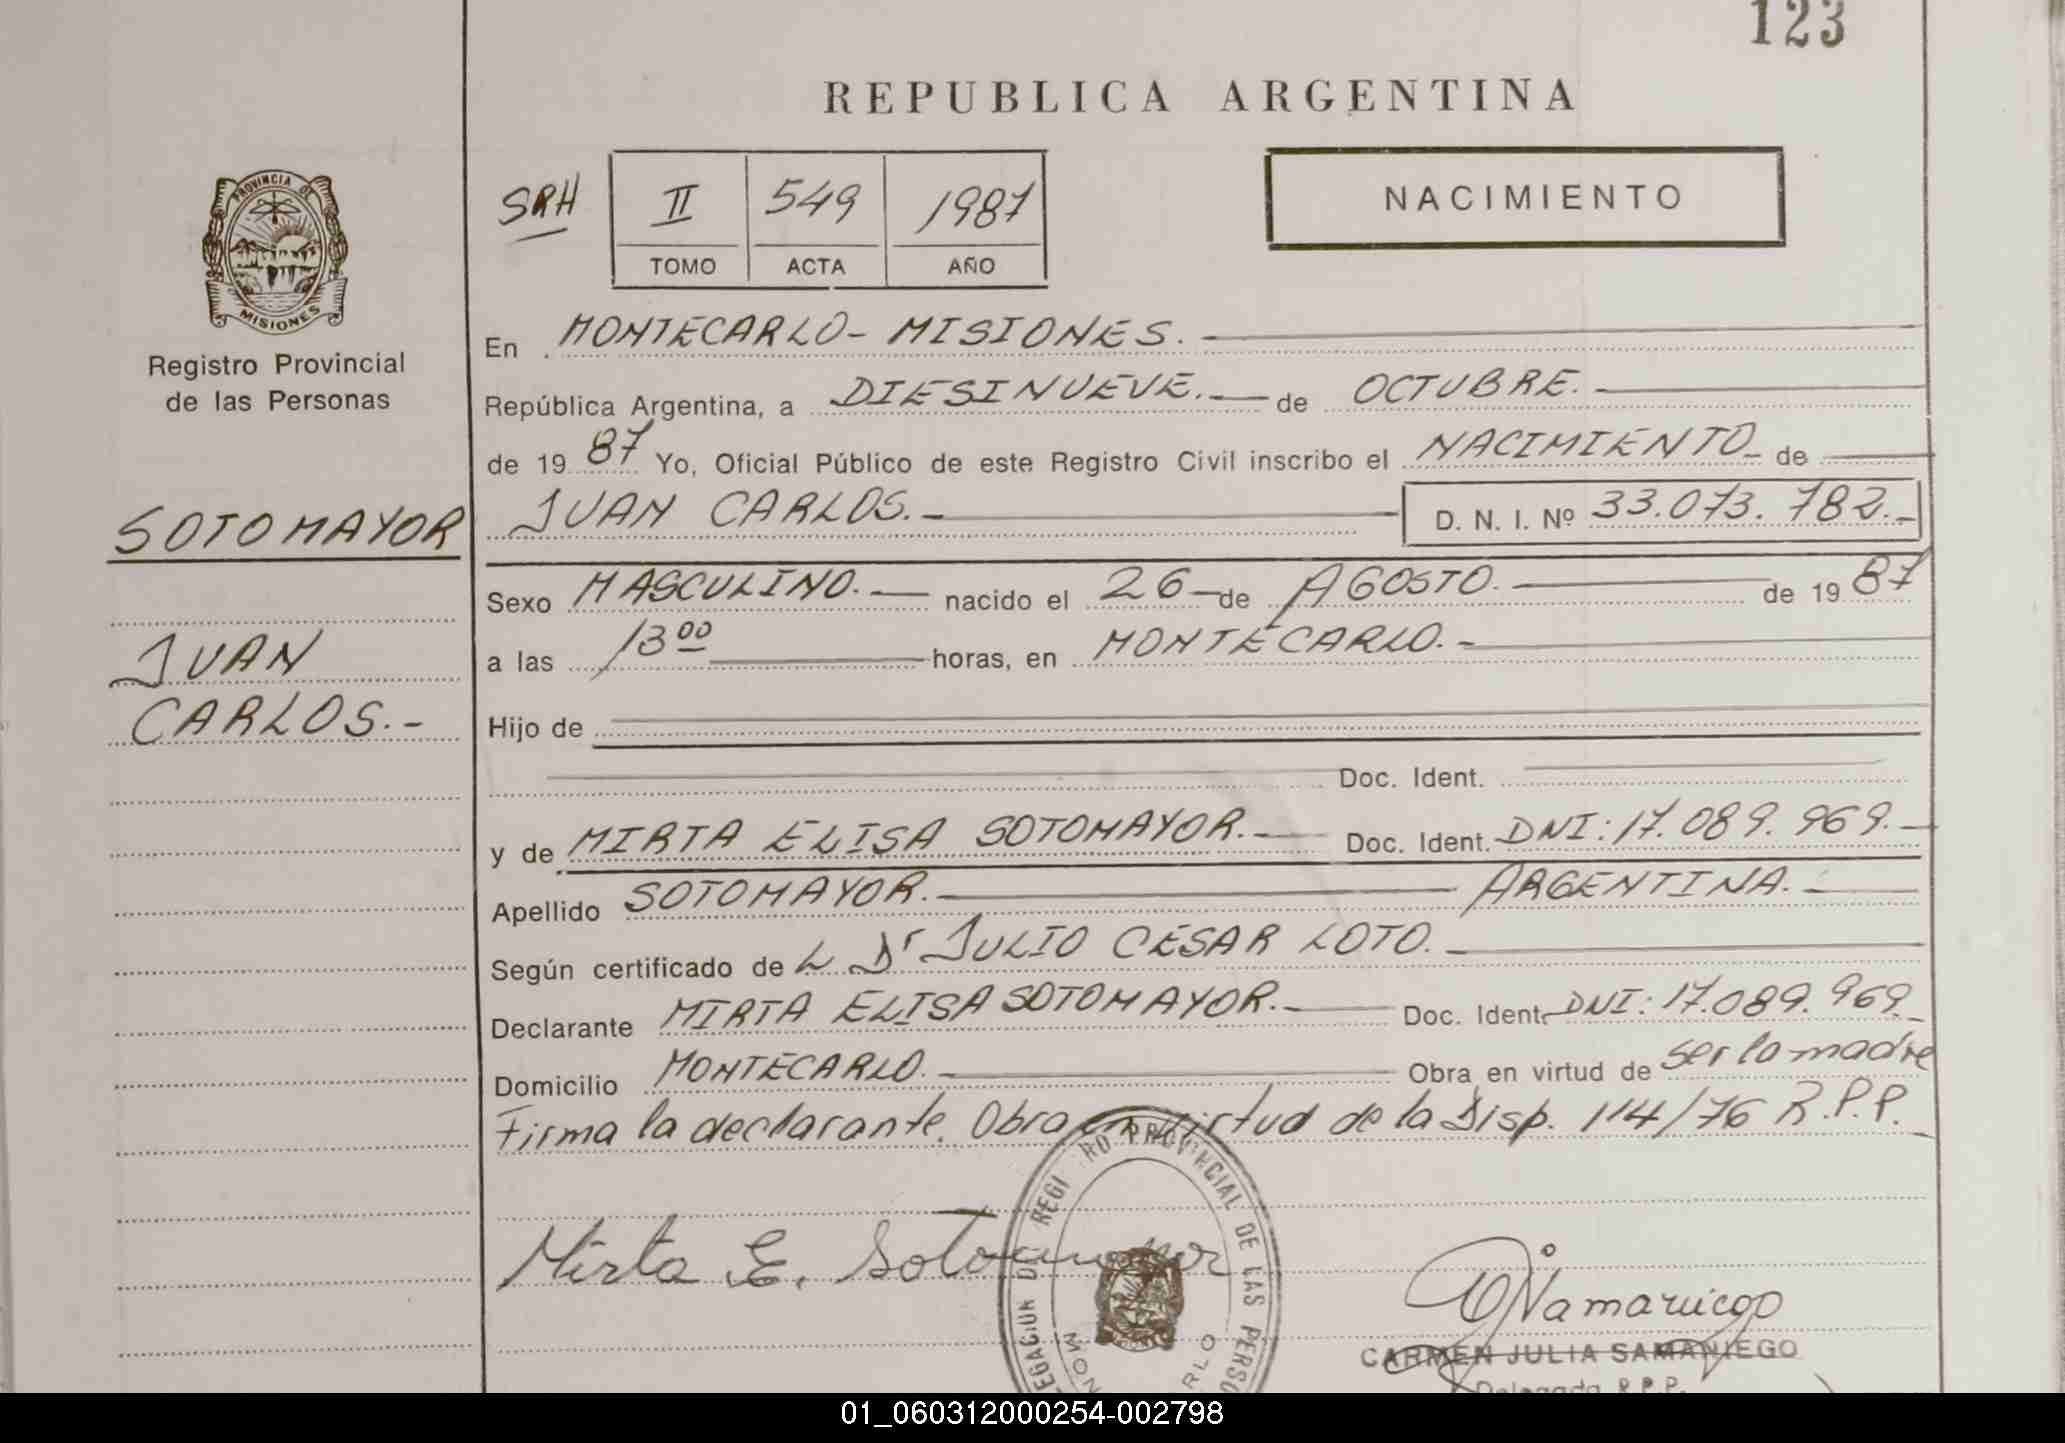 123
REPUBLICA ARGENTINA
PROVINCIA DE
MISIONES
Registro Provincial
de las Personas
SRH
II 549 1987
TOMO ACTA AÑO
NACIMIENTO
En MONTECARLO- MISIONES.
República Argentina, a DIESINUEVE. de OCTUBRE.
de 19 87 Yo, Oficial Público de este Registro Civil inscribo el NACIMIENTO de
SOTOMAYOR
JUAN CARLOS.-
D. N. I. Nº 33.073.782.-
Sexo MASCULINO.- nacido el 26 de AGOSTO. de 19 87
JUAN
CARLOS.-
a las 13 00 horas, en MONTECARLO.-
Hijo de
Doc. Ident.
y de MIRTA ELISA SOTOMAYOR.- Doc. Ident. DNI: 17.089.969.-
Apellido SOTOMAYOR.- ARGENTINA.-
Según certificado de L Dr JULIO CESAR LOTO.
Declarante MIRTA ELISA SOTOMAYOR.- Doc. Ident. DNI: 17.089.969.-
Domicilio MONTECARLO.- Obra en virtud de ser la madre
Firma la declarante. Obra en virtud de la Disp. 114/76 R.P.P.-
Mirta E. Sotomayor
REGISTRO PROVINCIAL DE LAS PERSO
CJSamaniego
CARMEN JULIA SAMANIEGO
Delegada R.P.P.
01_060312000254-002798